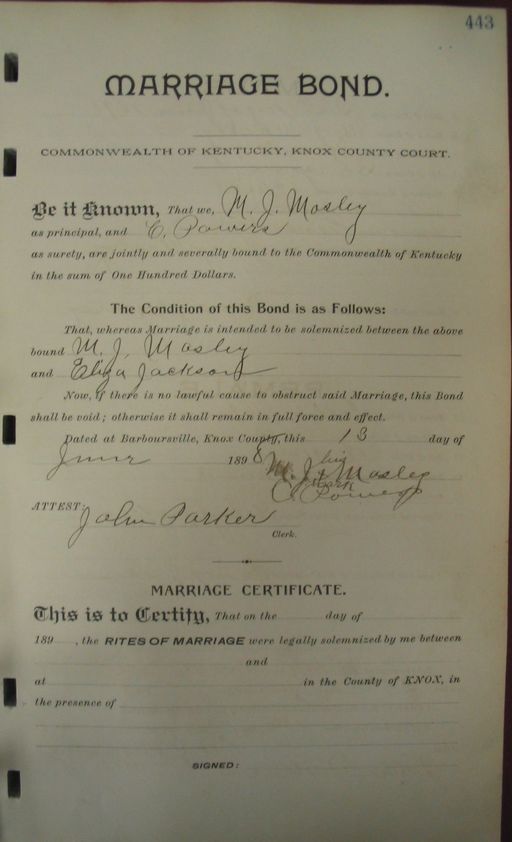 443
MARRIAGE BOND.
COMMONWEALTH OF KENTUCKY, KNOX COUNTY COURT.
Be it Known, That we, M. J. Mosley
as principal, and C. Powers
as surety, are jointly and severally bound to the Commonwealth of Kentucky
in the sum of One Hundred Dollars.
The Condition of this Bond is as Follows:
That, whereas Marriage is intended to be solemnized between the above
bound M. J. Mosley
and Eliza Jackson
Now, if there is no lawful cause to obstruct said Marriage, this Bond
shall be void; otherwise it shall remain in full force and effect.
Dated at Barboursville, Knox County, this 13 day of
June 1898
his
M. J. x Mosley
mark
C. Powers
ATTEST: John Parker
Clerk.
MARRIAGE CERTIFICATE.
This is to Certify, That on the day of
189 , the RITES OF MARRIAGE were legally solemnized by me between
and
at in the County of KNOX, in
the presence of
SIGNED: